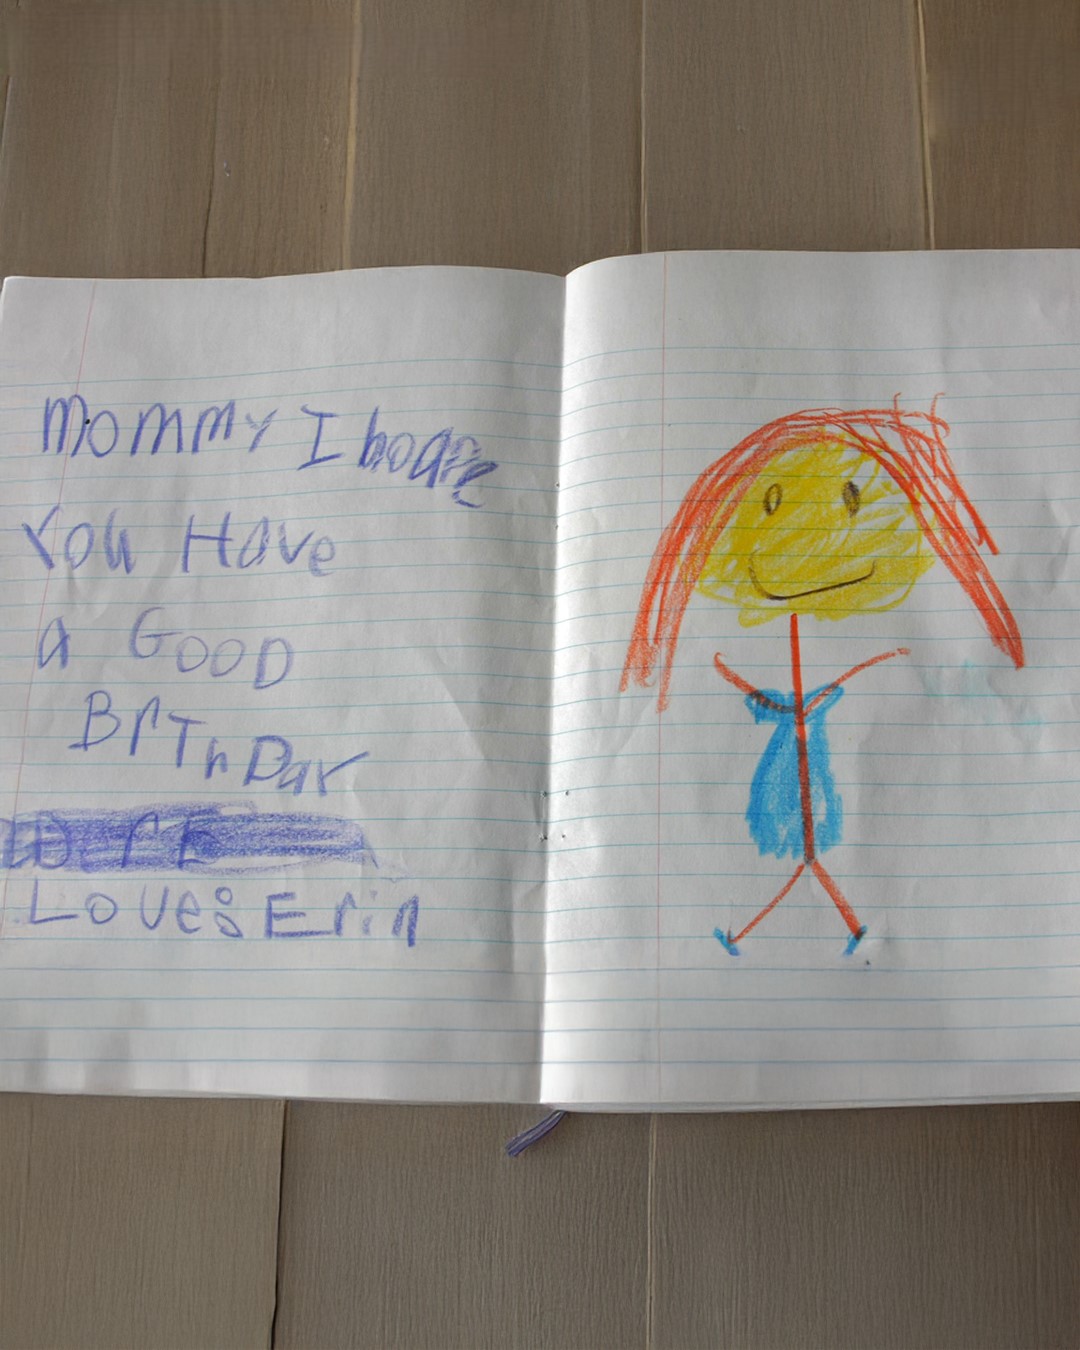 Mommy I hope
You Have
a GOOD
BrThDay
Loves Erin